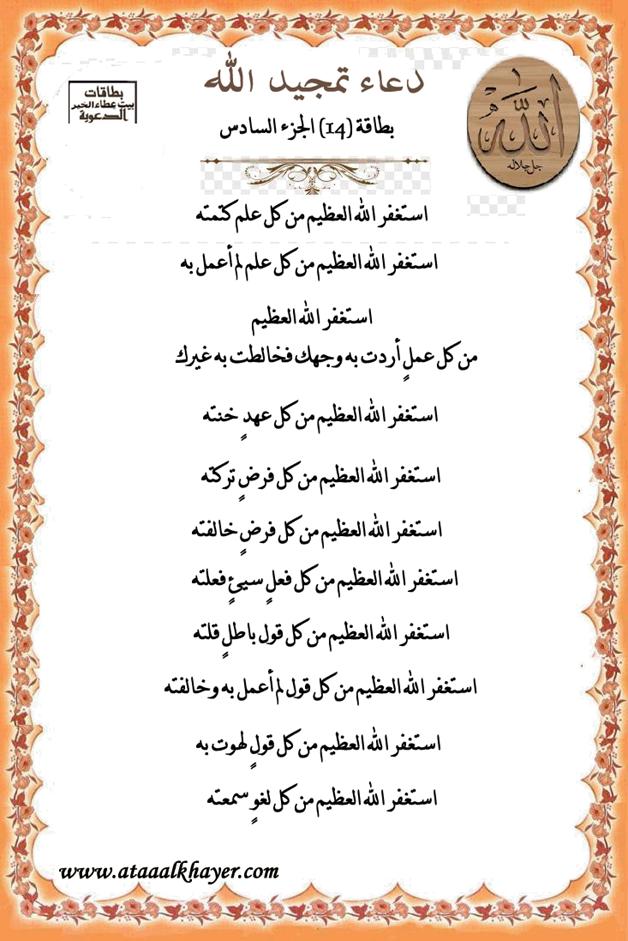 دعاء تمجيد الله
بطاقات
بيت عطاء الخير
الدعوية
الله
جل جلاله
بطاقة (14) الجزء السادس
استغفر الله العظيم من كل علم كتمته
استغفر الله العظيم من كل علم لم أعمل به
استغفر الله العظيم
من كل عملٍ أردت به وجهك فخالطت به غيرك
استغفر الله العظيم من كل عهدٍ خنته
استغفر الله العظيم من كل فرضٍ تركته
استغفر الله العظيم من كل فرضٍ خالفته
استغفر الله العظيم من كل فعلٍ سيئٍ فعلته
استغفر الله العظيم من كل قول باطلٍ قلته
استغفر الله العظيم من كل قول لم أعمل به وخالفته
استغفر الله العظيم من كل قولٍ لهوت به
استغفر الله العظيم من كل لغوٍ سمعته
www.ataaalkhayer.com